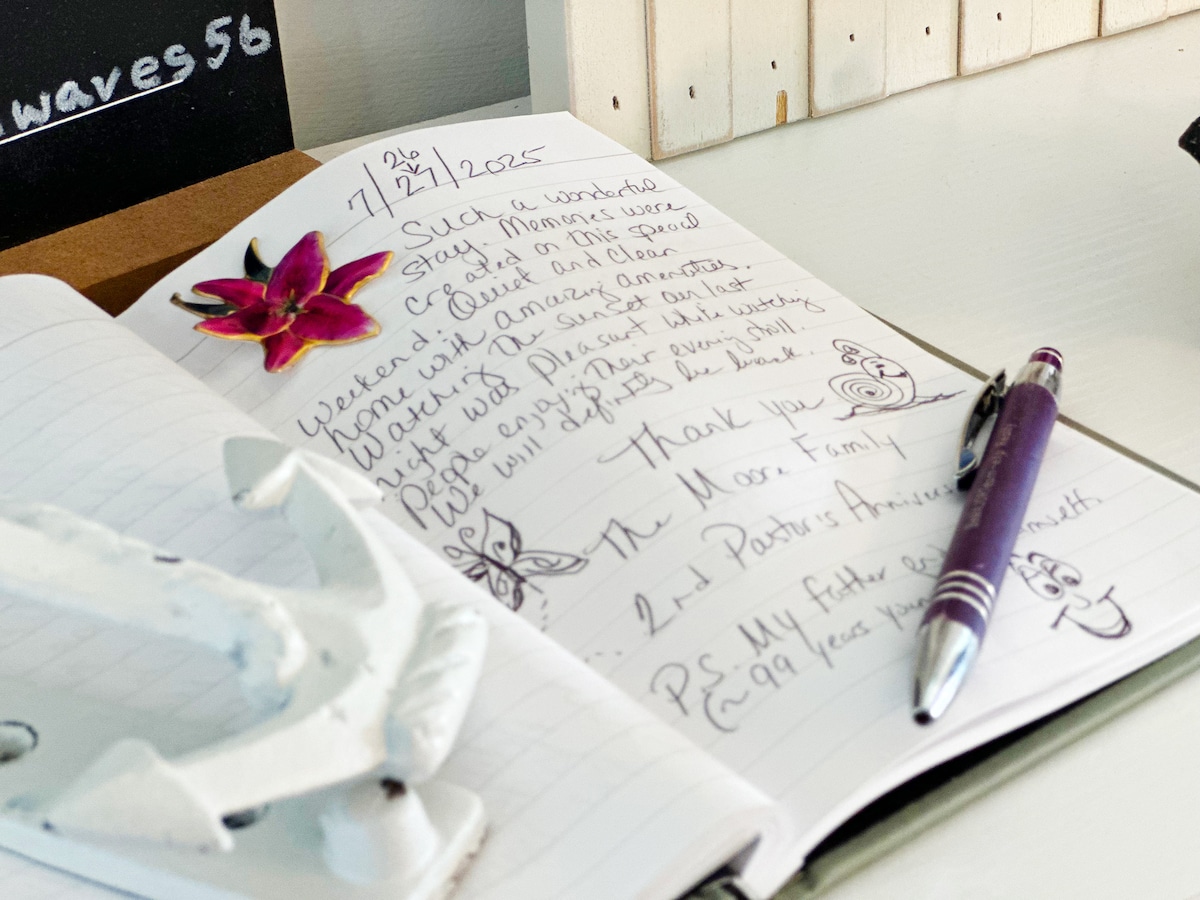 waves56
26
7/27/2025
Such a wonderful
stay. Memories were
created on this special
weekend. Quiet and Clean
home with amazing amenities.
Watching the sunset our last
night was pleasant while watching
people enjoying their evening stroll.
We will definitly be back.
Thank you
The Moore Family
2nd Pastor's
P.S. My father
(~99 years